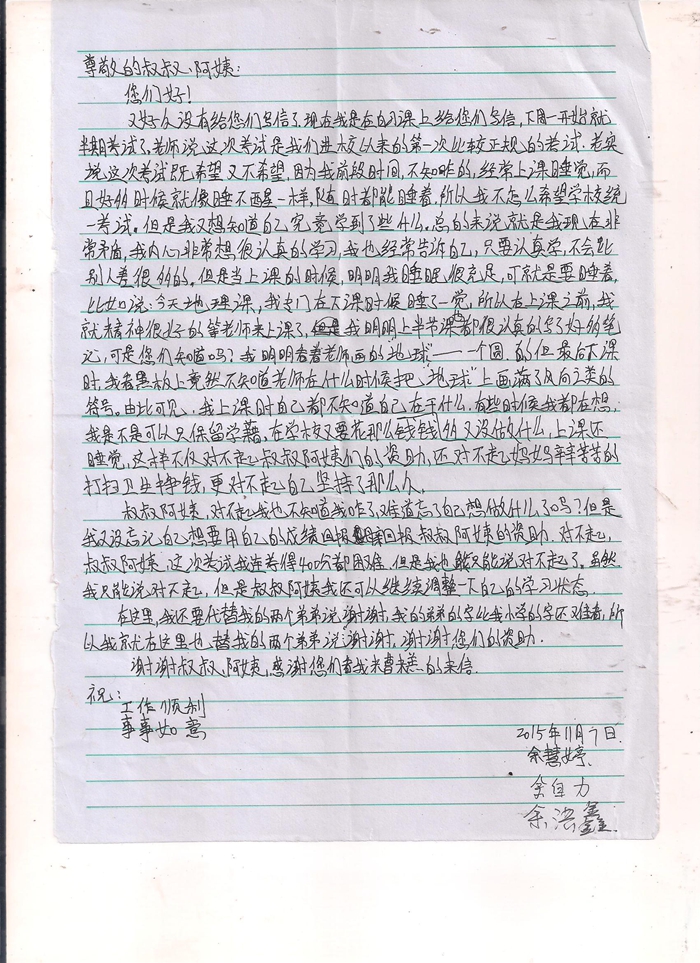 尊敬的叔叔、阿姨:
您们好!
又好久没有给您们写信了,现在我是在自习课上给您们写信,下周一开始就
半期考试了,老师说这次考试是我们进校以来的第一次比较正规的考试.老实
说这次考试既希望又不希望,因为我前段时间,不知咋的,经常上课睡觉,而
且好多时候就像睡不醒是一样,随时都能睡着,所以我不怎么希望学校统
一考试。但是我又想知道自己究竟学到了些什么。总的来说就是我现在非
常矛盾,我内心非常想很认真的学习,我也经常告诉自己,只要认真学,不会比
别人差很多的。但是当上课的时候,明明我睡眠很充足,可就是要睡着,
比如说:今天地理课,我专门在下课时候睡了一觉,所以在上课之前,我
就精神很好的等老师来上课了,但是我明明上半节课也都很认真的写了好多笔
记,可是您们知道吗?我明明看着老师画的"地球"——一个圆的但最后下课
时,我看黑板上竟然不知道老师在什么时候把"地球"上画满了风向之类的
符号。由此可见,我上课时自己都不知道自己在干什么.有些时候我都在想,
我是不是可以只保留学籍,在学校又要花那么钱钱的又没做什么,上课还
睡觉,这样不仅对不起叔叔阿姨们的资助,还对不起妈妈辛辛苦苦的
打扫卫生挣钱,更对不起自己坚持了那么久.
叔叔阿姨,对不起我也不知道我咋了,难道忘了自己想做什么了吗?但是
我又没忘记自己想要用自己的成绩回报叔叔阿姨的资助.对不起,
叔叔阿姨.这次考试我连考得400分都困难.但是我也只能说对不起了.虽然
我只能说对不起,但是叔叔阿姨我还可以继续调整一下自己的学习状态.
在这里,我还要代替我的两个弟弟说谢谢,我的弟弟的字比我小学的字还难看,所
以我就在这里也替我的两个弟弟说谢谢,谢谢您们的资助.
谢谢叔叔、阿姨,感谢您们看我的来信.
祝:
工作顺利
事事如意
2015年11月7日.
余慧婷
余自力
余浩鑫